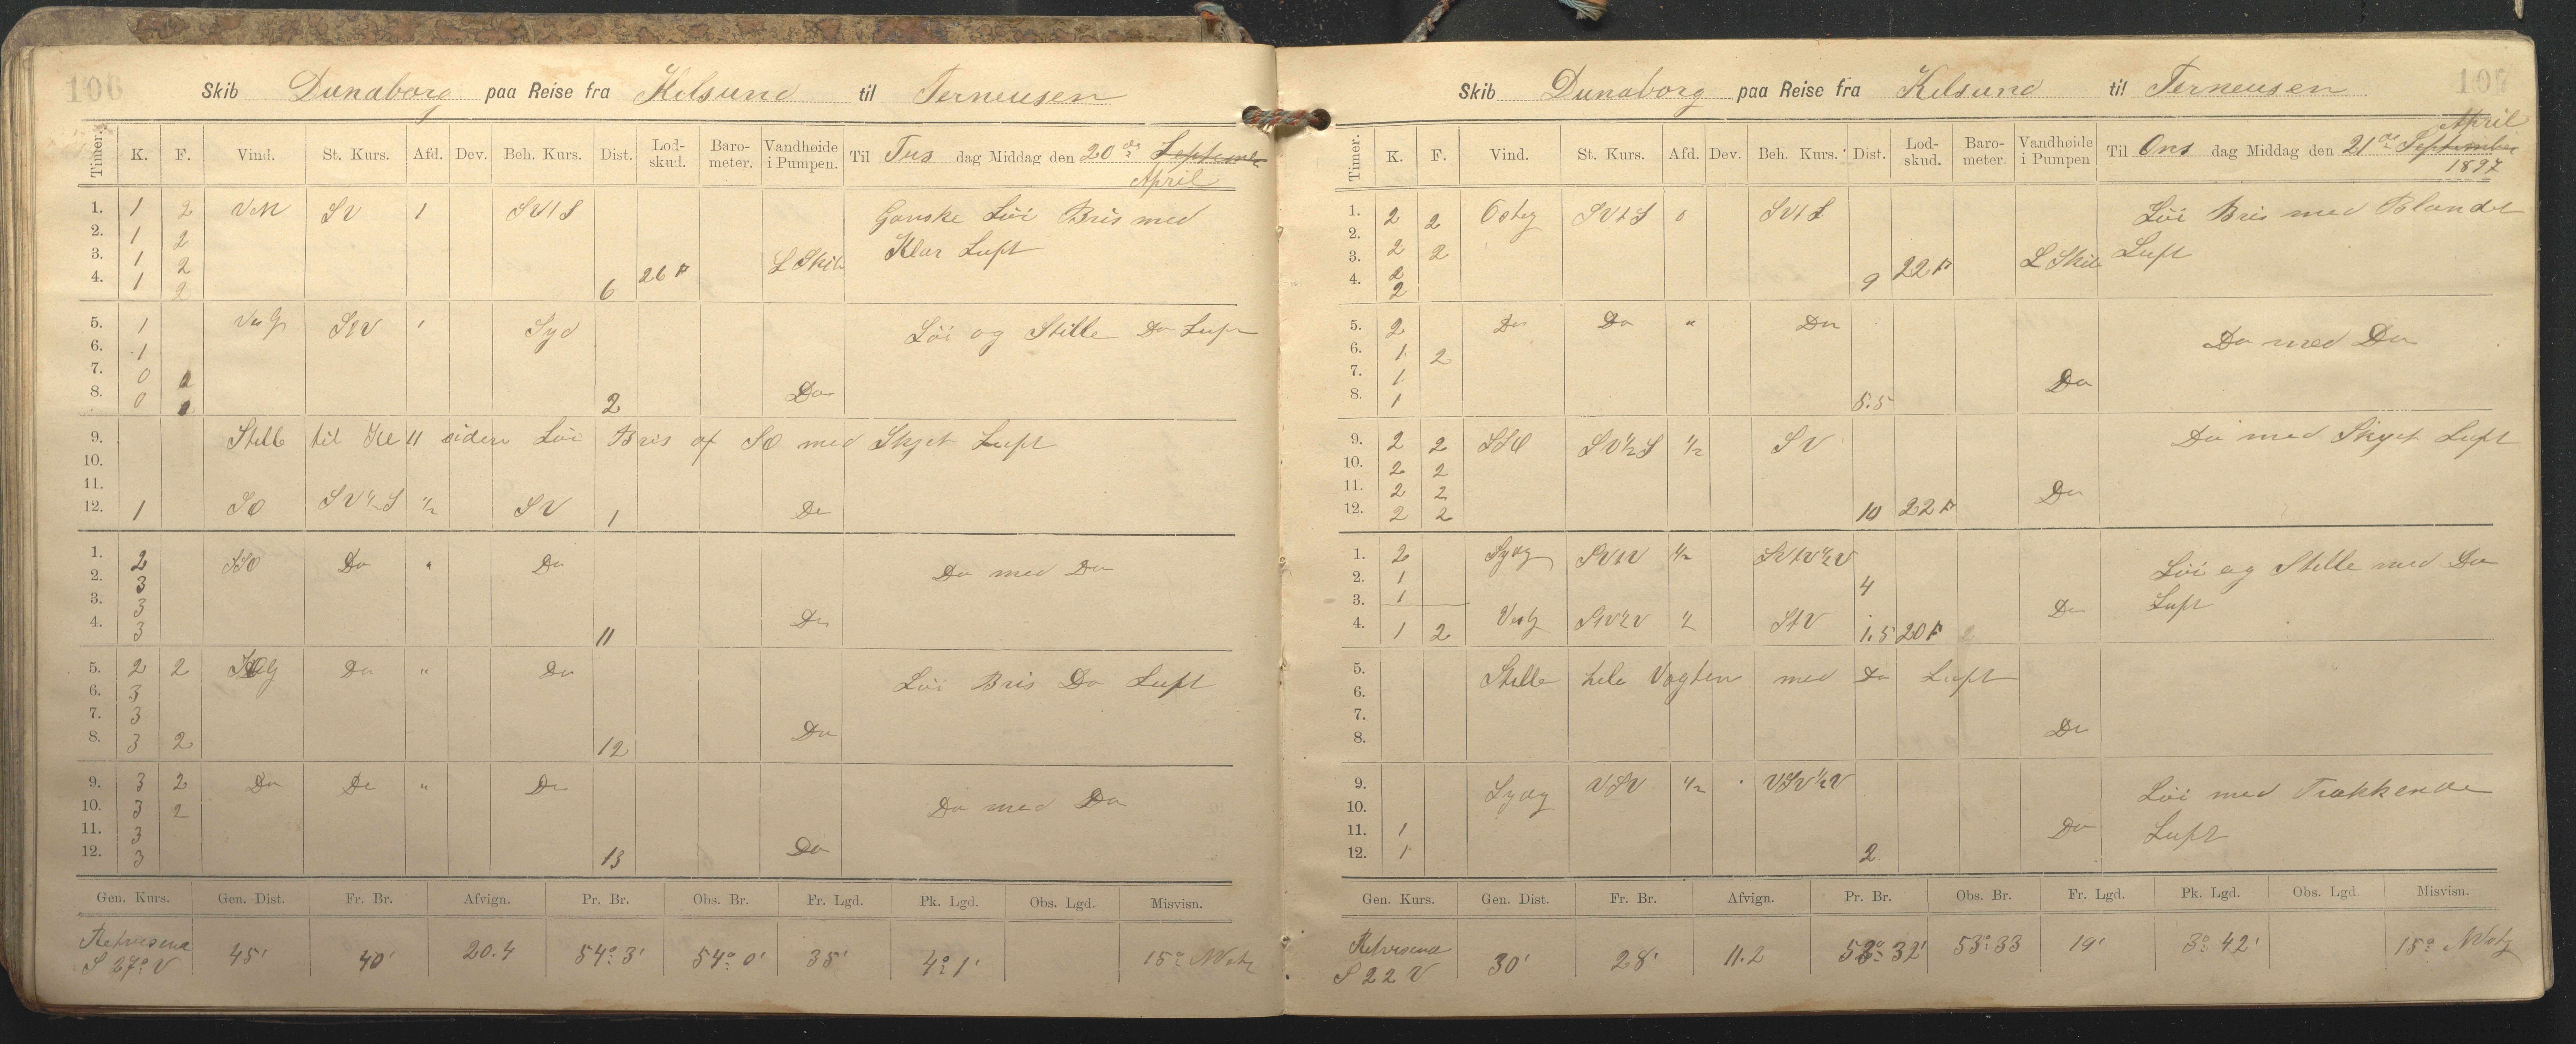 106
Skib Dunaborg paa Reise fra Kilsund til Terneusen
Timer. K. F. Vind. St. Kurs. Afd. Dev. Beh. Kurs. Dist. Lod-skud. Baro-meter. Vandhøide i Pumpen. Til Tirs dag Middag den 20de September
April
1. 1 2 SV 1 SVtS Ganske Löi Bris med
2. 1 2
3. 1 2 L Skib Klar Luft
4. 1 2 6 26 F
5. 1 StV Syd Löi og Stille Do Luft
6. 1
7. 0
8. 0 2 Do
9. Stille til Kl 11 siden Löi Bris af SO med Skyet Luft
10.
11.
12. 1 SO SV½S ½ SV 1 Do
1. 2 SSO Do " Do Do med Do
2. 3
3. 3
4. 3 11 Do
5. 2 2 Do " Do Löi Bris Do Luft
6. 3
7. 3
8. 3 2 12 Do
9. 3 2 Do Do " Do
10. 3 2 Do med Do
11. 3
12. 3 13 Do
Gen. Kurs. Gen. Dist. Fr. Br. Afvign. Pr. Br. Obs. Br. Fr. Lgd. Pk. Lgd. Obs. Lgd. Misvisn.
Retvisend
S 27° V 45' 40' 20.4 54° 3' 54° 0' 35' 4° 1' 15° NVstg
107
Skib Dunaborg paa Reise fra Kilsund til Terneusen
April
Timer. K. F. Vind. St. Kurs. Afd. Dev. Beh. Kurs. Dist. Lod-skud. Baro-meter. Vandhøide i Pumpen Til Ons dag Middag den 21de September
1897
1. 2 2 Osteg SVtS 0 SVtS Löi Bris med Blandet
2.
3. 2 2 L Skib Luft
4. 2 9 22 F
2
5. 2 Do Do " Do
6. 1 2 Do med Do
7. 1 Do
8. 1 5.5
9. 2 2 SSO SV½S ½ SV Do med Skyet Luft
10. 2 2
11. 2 2 Do
12. 2 2 10 22 F
1. 2 Sydg SVtV ½ SVtV½V Löi og Stille med Do
2. 1 4
3. 1 Do Luft
4. 1 2 Vestg ½ StV 1.5 20 F
5. Stille hele Vagten med Do Luft
6.
7.
8. Do
9. Sydg VSV ½ VSV½V Löi med Trækkende
10.
11. 1 Do Luft
12. 1 2
Gen. Kurs. Gen. Dist. Fr. Br. Afvign. Pr. Br. Obs. Br. Fr. Lgd. Pk. Lgd. Obs. Lgd. Misvisn.
Retvisend
S 22 V 30' 28' 11.2 53° 32' 53° 33 19' 3° 42' 15° NVstg